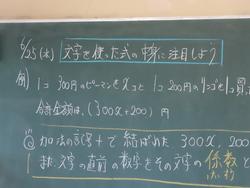 6/25(木) 文字を使った式の中身に注目しよう
例) 1コ300円のピーマンをxコと1コ200円のリンゴを1コ買
合計金額は、(300x+200)円
加法の記号+で結ばれた300x, 200
また、文字の直前の数字をその文字の係数